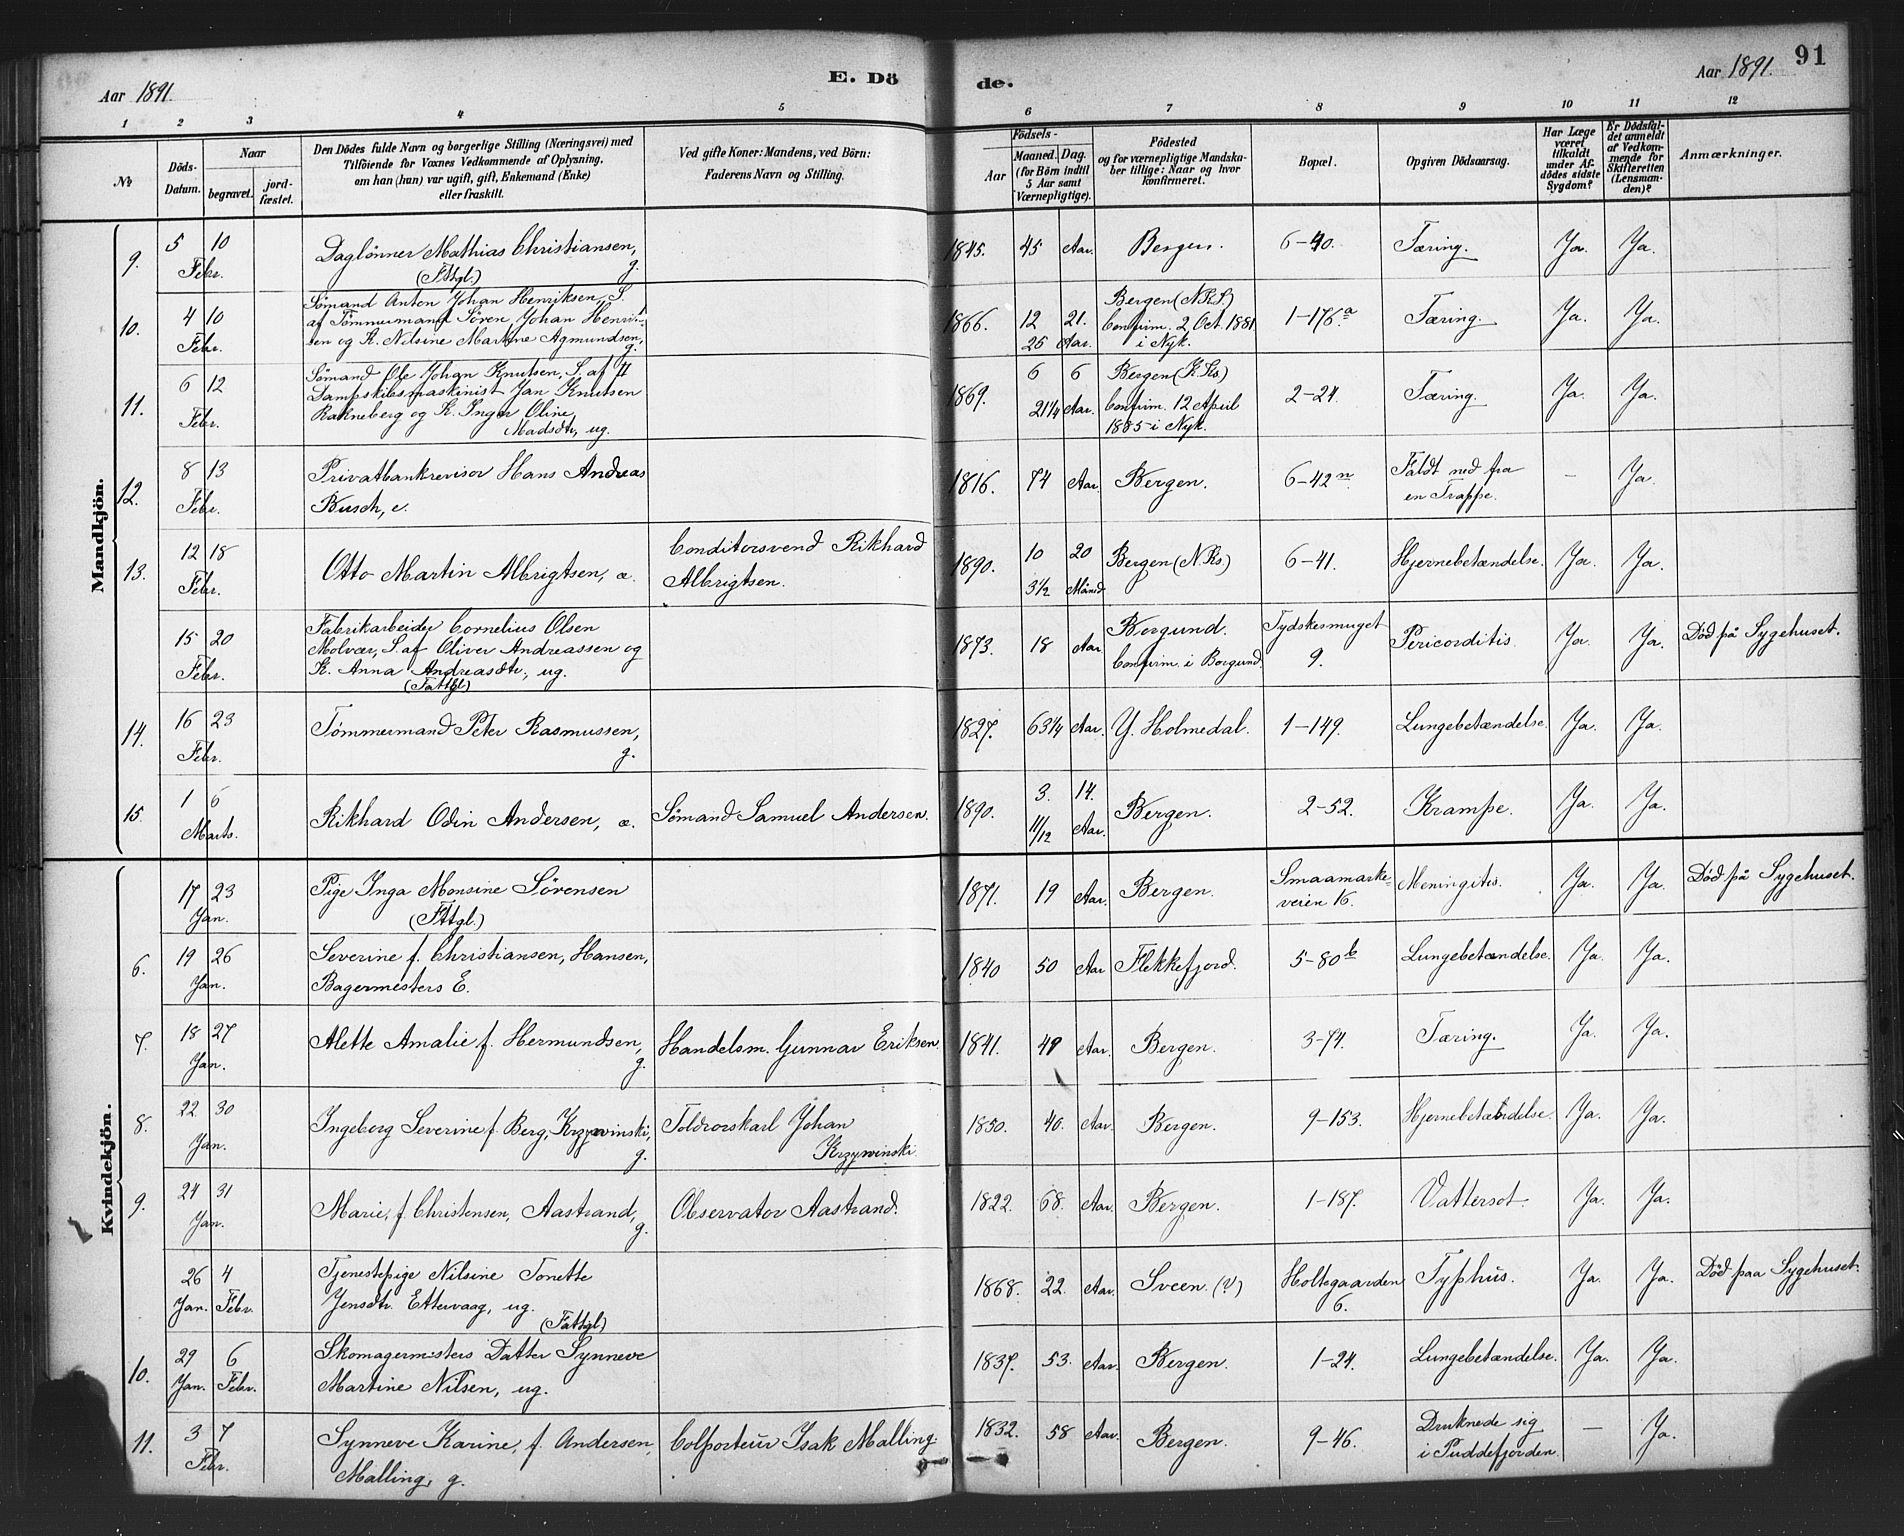 Aar 1891.
E. Dö
de.
Aar 1891.
91
1 2 3 4 5 6 7 8 9 10 11 12
No
Döds-Datum.
Naar
begravet.
jord-fæstet.
Den Dödes fulde Navn og borgerlige Stilling (Næringsvei) med
Tilföiende for Voxnes Vedkommende af Oplysning,
om han (hun) var ugift, gift, Enkemand (Enke)
eller fraskilt.
Ved gifte Koner: Mandens, ved Börn:
Faderens Navn og Stilling.
Födsels-
Aar
Maaned.
Dag.
(for Börn indtil
5 Aar samt
Værnepligtige).
Födested
og for værnepligtige Mandska-
ber tillige: Naar og hvor
konfirmeret.
Bopæl.
Opgiven Dödsaarsag.
Har Læge
været
tilkaldt
under Af-
dödes sidste
Sygdom?
Er Dödsfal-
det anmeldt
af Vedkom-
mende for
Skifteretten
(Lensman-
den)?
Anmærkninger.
Mandkjön.
9. 5 Febr. 10 Daglönner Mathias Christiansen, g.
(Fttgl.)
1845. 45 Aar. Bergen. 6-40. Tæring. Ja. Ja.
10. 4 Febr. 10 Sømand Anton Johan Henriksen, S.
af Tömmermand Sören Johan Henrik-
sen og K. Nilsine Martine Agmundsen, g.
1866. 12 21. 25 Aar. Bergen (N.K.S.)
Confirm. 2 Oct. 1881
i Nyk.
1-176a Tæring. Ja. Ja.
11. 6 Febr. 12 Sømand Ole Johan Knutsen, S. af
Dampskibsmaskinist Jan Knutsen
Rakneberg og K. Inger Oline
Madsdtr, ug.
1869. 6 6 21¼ Aar. Bergen (K.Ks.)
Confirm. 12 April
1885 i Nyk.
2-24. Tæring. Ja. Ja.
12. 8 Febr. 13 Privatbankrevisor Hans Andreas
Busch, e.
1816. 74 Aar. Bergen. 6-42n. Faldt ned fra
en Trappe. - Ja.
13. 12 Febr. 18 Otto Martin Albrigtsen, æ. Conditorsvend Rikhard
Albrigtsen.
1890. 10 20 3½ Måned Bergen (N.Ks.) 6-41. Hjernebetændelse. Ja. Ja.
15 Febr. 20 Fabrikarbeider Cornelius Olsen
Molvær, S. af Oliver Andreassen og
K. Anna Andreasdtr, ug.
(Fattgl)
1873. 18 Aar Borgund.
Confirm. i Borgund.
Tydskesmuget
9.
Pericorditis. Ja. Ja. Död på Sygehuset.
14. 16 Febr. 23 Tømmermand Peter Rasmussen, g.
1827. 63¼ Aar. Y. Holmedal. 1-149. Lungebetændelse. Ja. Ja.
15. 1 Marts. 6 Rikhard Odin Andersen, æ. Sømand Samuel Andersen.
1890. 3. 14. 11/12 Aar. Bergen. 2-52. Krampe. Ja. Ja.
Kvindekjön.
17 Jan. 23 Pige Inga Monsine Sörensen
(Fttgl.)
1871. 19 Aar. Bergen. Smaamarke-
veien 16.
Meningites. Ja. Ja. Död på Sygehuset.
6. 19 Jan. 26 Severine f. Christiansen, Hansen,
Bagermesters E.
1840 50 Aar Flekkefjord. 5-80b Lungebetændelse. Ja. Ja.
7. 18 Jan. 27 Alette Amalie f. Hermundsen, g. Handelsm. Gunnar Eriksen.
1841. 49 Aar. Bergen. 3-74. Tæring. Ja. Ja.
8. 22 Jan. 30 Ingeborg Severine f. Berg, Krzywinski, g. Toldrorskarl Johan
Krzywinski.
1850. 40. Aar. Bergen. 9-153. Hjernebetændelse. Ja. Ja.
9. 24 Jan. 31 Marie, f. Christensen, Aastrand, g. Observator Aastrand.
1822. 68. Aar. Bergen. 1-187. Vattersot. Ja. Ja.
26 Jan. 4 Febr. Tjenestepige Nilsine Tonette
Jensdtr. Ettervaag, ug.
(Fattgl)
1868. 22. Aar. Sveen (?) Holtegaarden
6.
Typhus. Ja. Ja. Död paa Sygehuset.
10. 29 Jan. 6 Febr. Skomagermesters Datter Synneve
Martine Nilsen, ug.
1837. 53. Aar. Bergen. 1-24. Lungebetændelse. Ja. Ja.
11. 3 Febr. 7 Synneve Karine, f. Andersen,
Malling, g.
Colporteur Isak Malling.
1832. 58 Aar. Bergen. 9-46. Druknede sig
i Puddefjorden. - Ja.